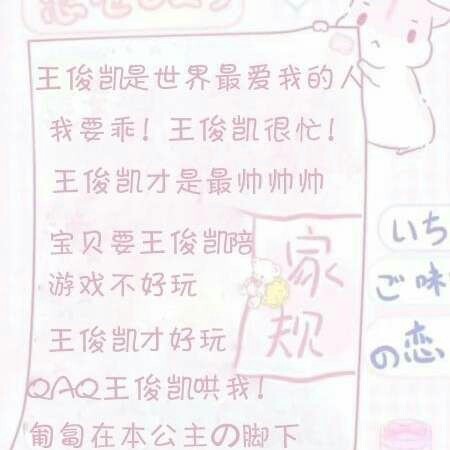 王俊凯是世界最爱我的人
我要乖！王俊凯很忙！
王俊凯才是最帅帅帅
宝贝要王俊凯陪
游戏不好玩
王俊凯才好玩
QAQ王俊凯哄我！
匍匐在本公主の脚下
家规
いち
ご味
の恋